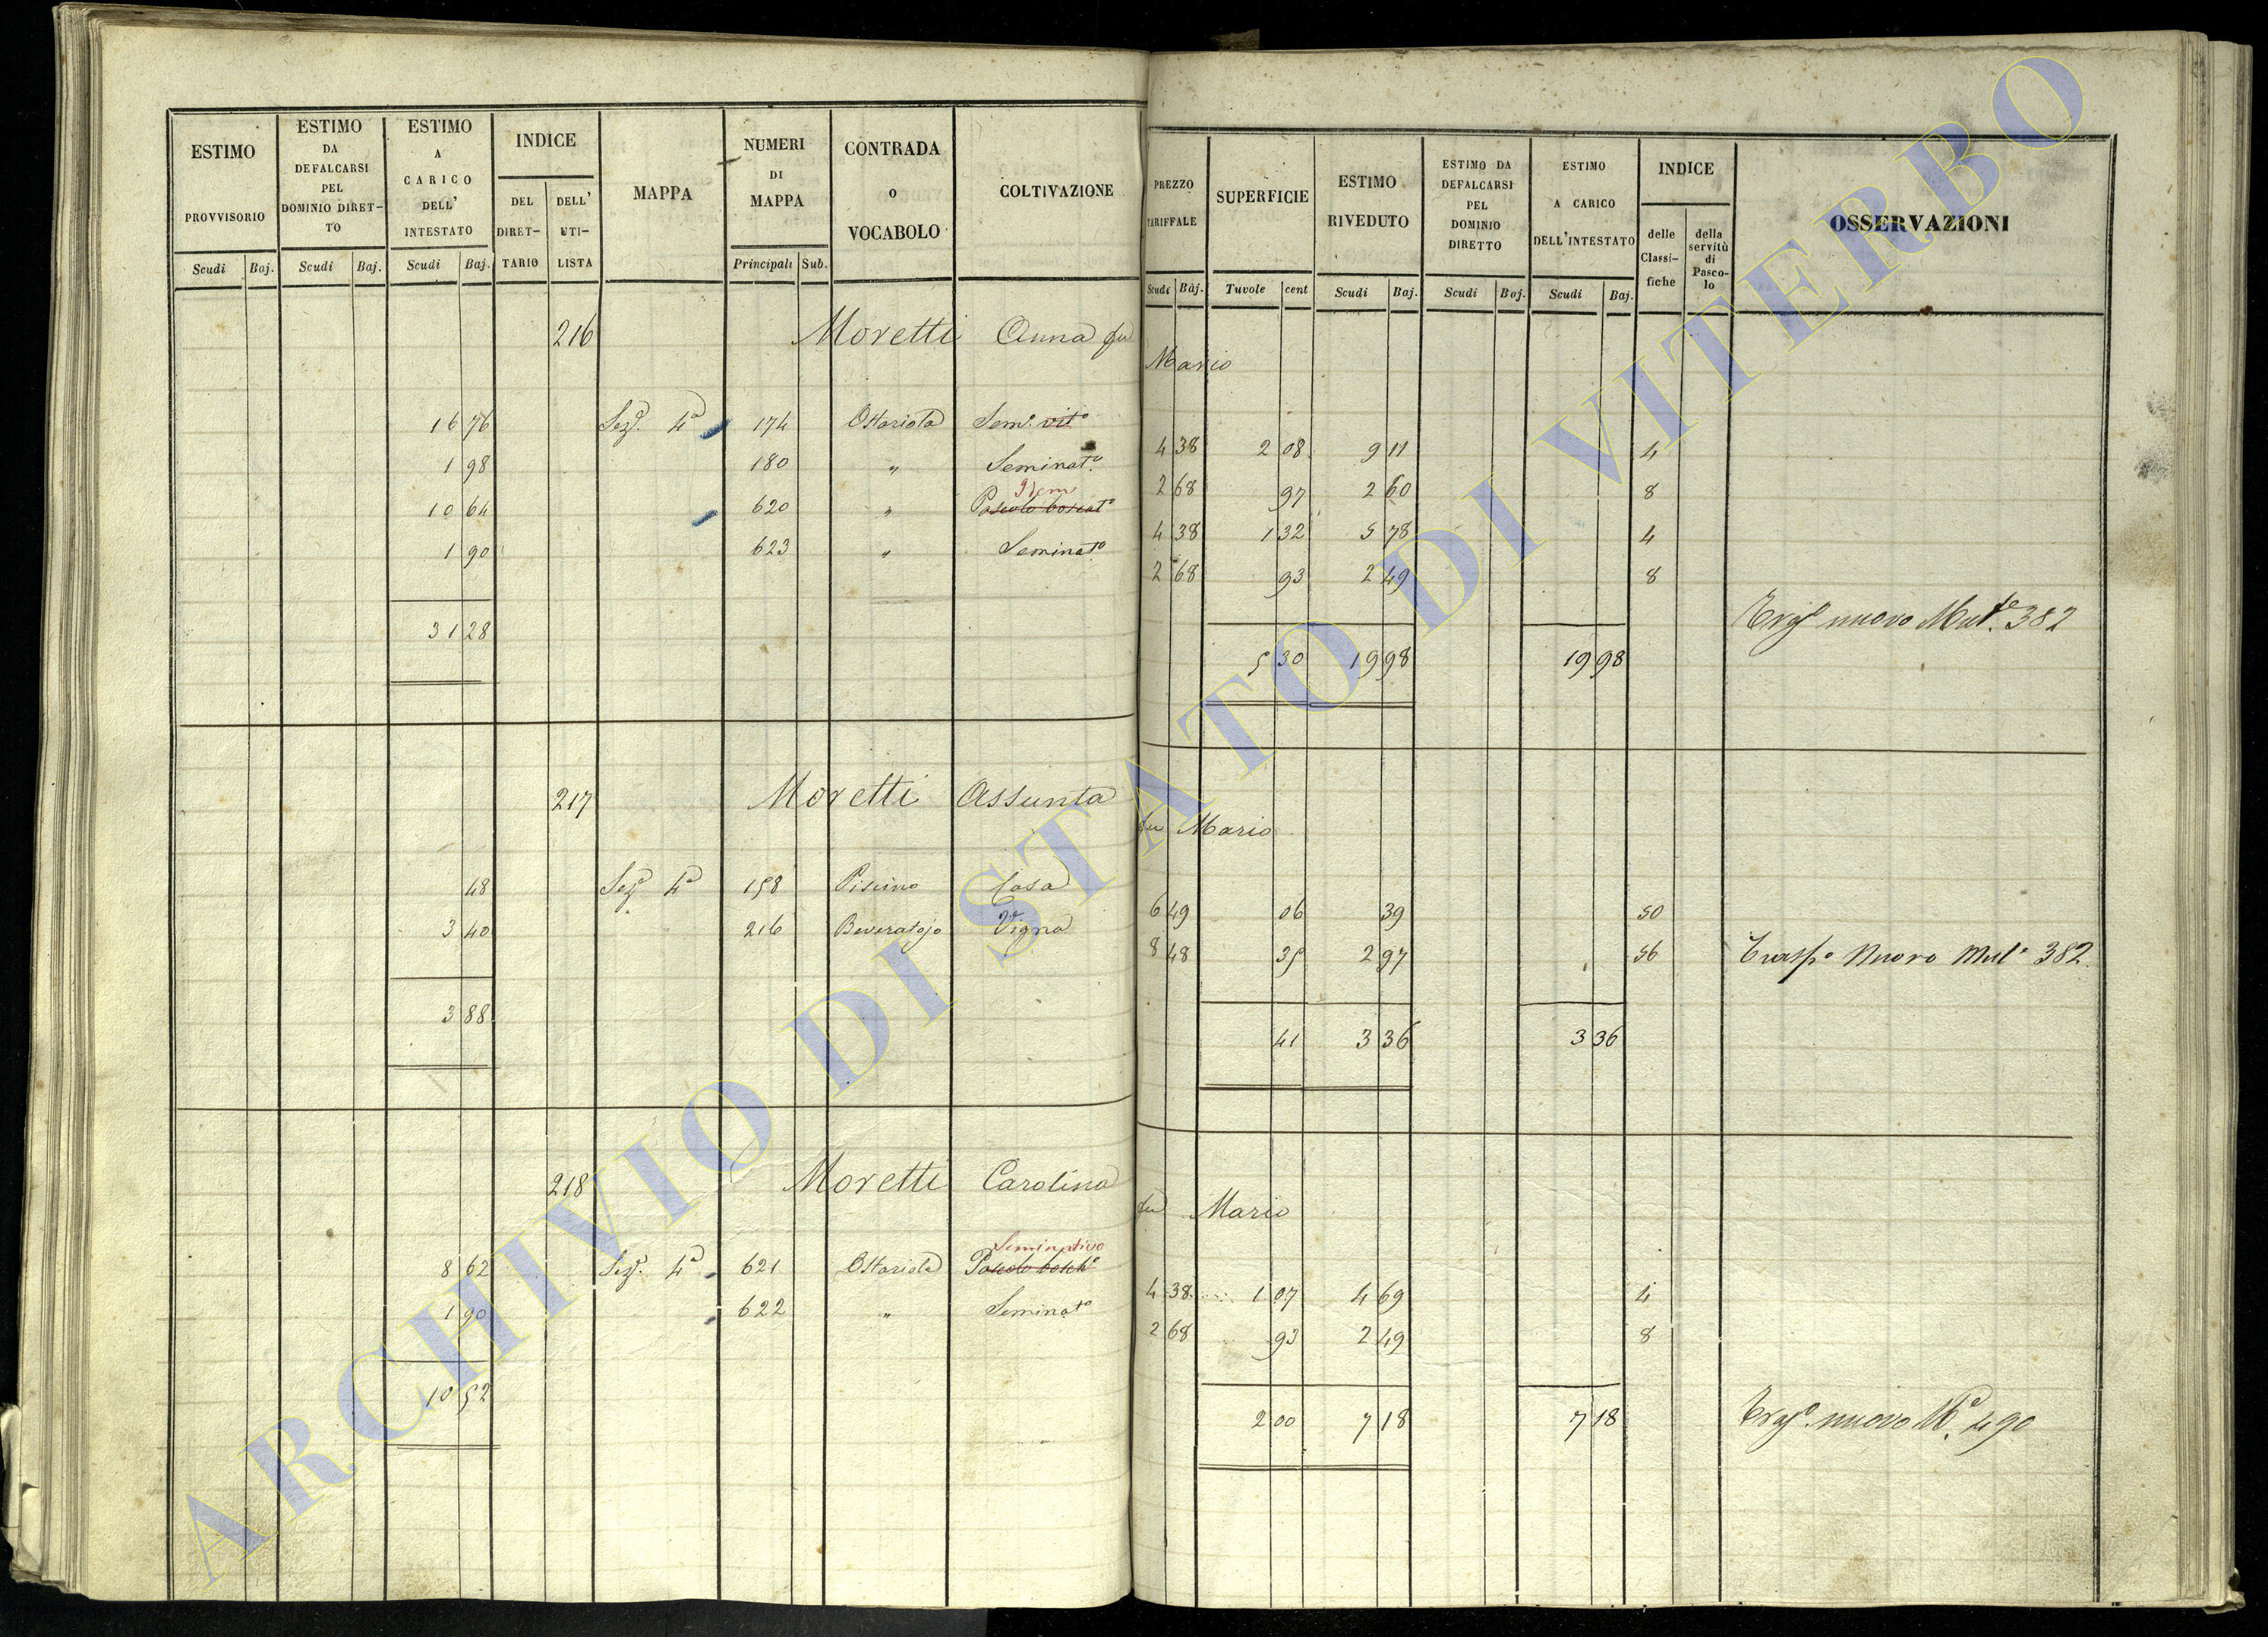 ESTIMO PROVVISORIO Scudi Baj.
ESTIMO DA DEFALCARSI PEL DOMINIO DIRET-TO Scudi Baj.
ESTIMO A CARICO DELL' INTESTATO Scudi Baj.
INDICE DEL DIRET-TARIO DELL' UTI-LISTA
MAPPA
NUMERI DI MAPPA Principali Sub.
CONTRADA o VOCABOLO
COLTIVAZIONE
PREZZO TARIFFALE Scudi Baj.
SUPERFICIE Tavole cent
ESTIMO RIVEDUTO Scudi Baj.
ESTIMO DA DEFALCARSI PEL DOMINIO DIRETTO Scudi Baj.
ESTIMO A CARICO DELL'INTESTATO Scudi Baj.
INDICE delle Classi-fiche della servitù di Pasco-lo
OSSERVAZIONI
216 Moretti Anna fu Mario
16 76 Sez.e 4a 174 Ostariola Sem.o vit.o 4 38 2 08 9 11 4
1 98 180 " Seminat.o 2 68 97 2 60 8
Idem
10 64 620 " Pascolo boscat.o 4 38 1 32 5 78 4
1 90 623 " Seminat.o 2 68 93 2 49 8
31 28 5 30 19 98 19 98
nuovo 382
217 Moretti Assunta fu Mario
48 Sez.e 4a 158 Piscino Casa 6 49 06 39 50
3 40 216 Beveratojo Vigna 8 48 35 2 97 56 Trasp.o Nuovo 382
3 88 41 3 36 3 36
218 Moretti Carolina fu Mario
Seminativo
8 62 Sez.e 4a 621 Ostariola Pascolo bosch.o 4 38 1 07 4 69 4
1 90 622 " Seminat.o 2 68 93 2 49 8
10 52 2 00 7 18 7 18 nuovo 490
ARCHIVIO DI STATO DI VITERBO